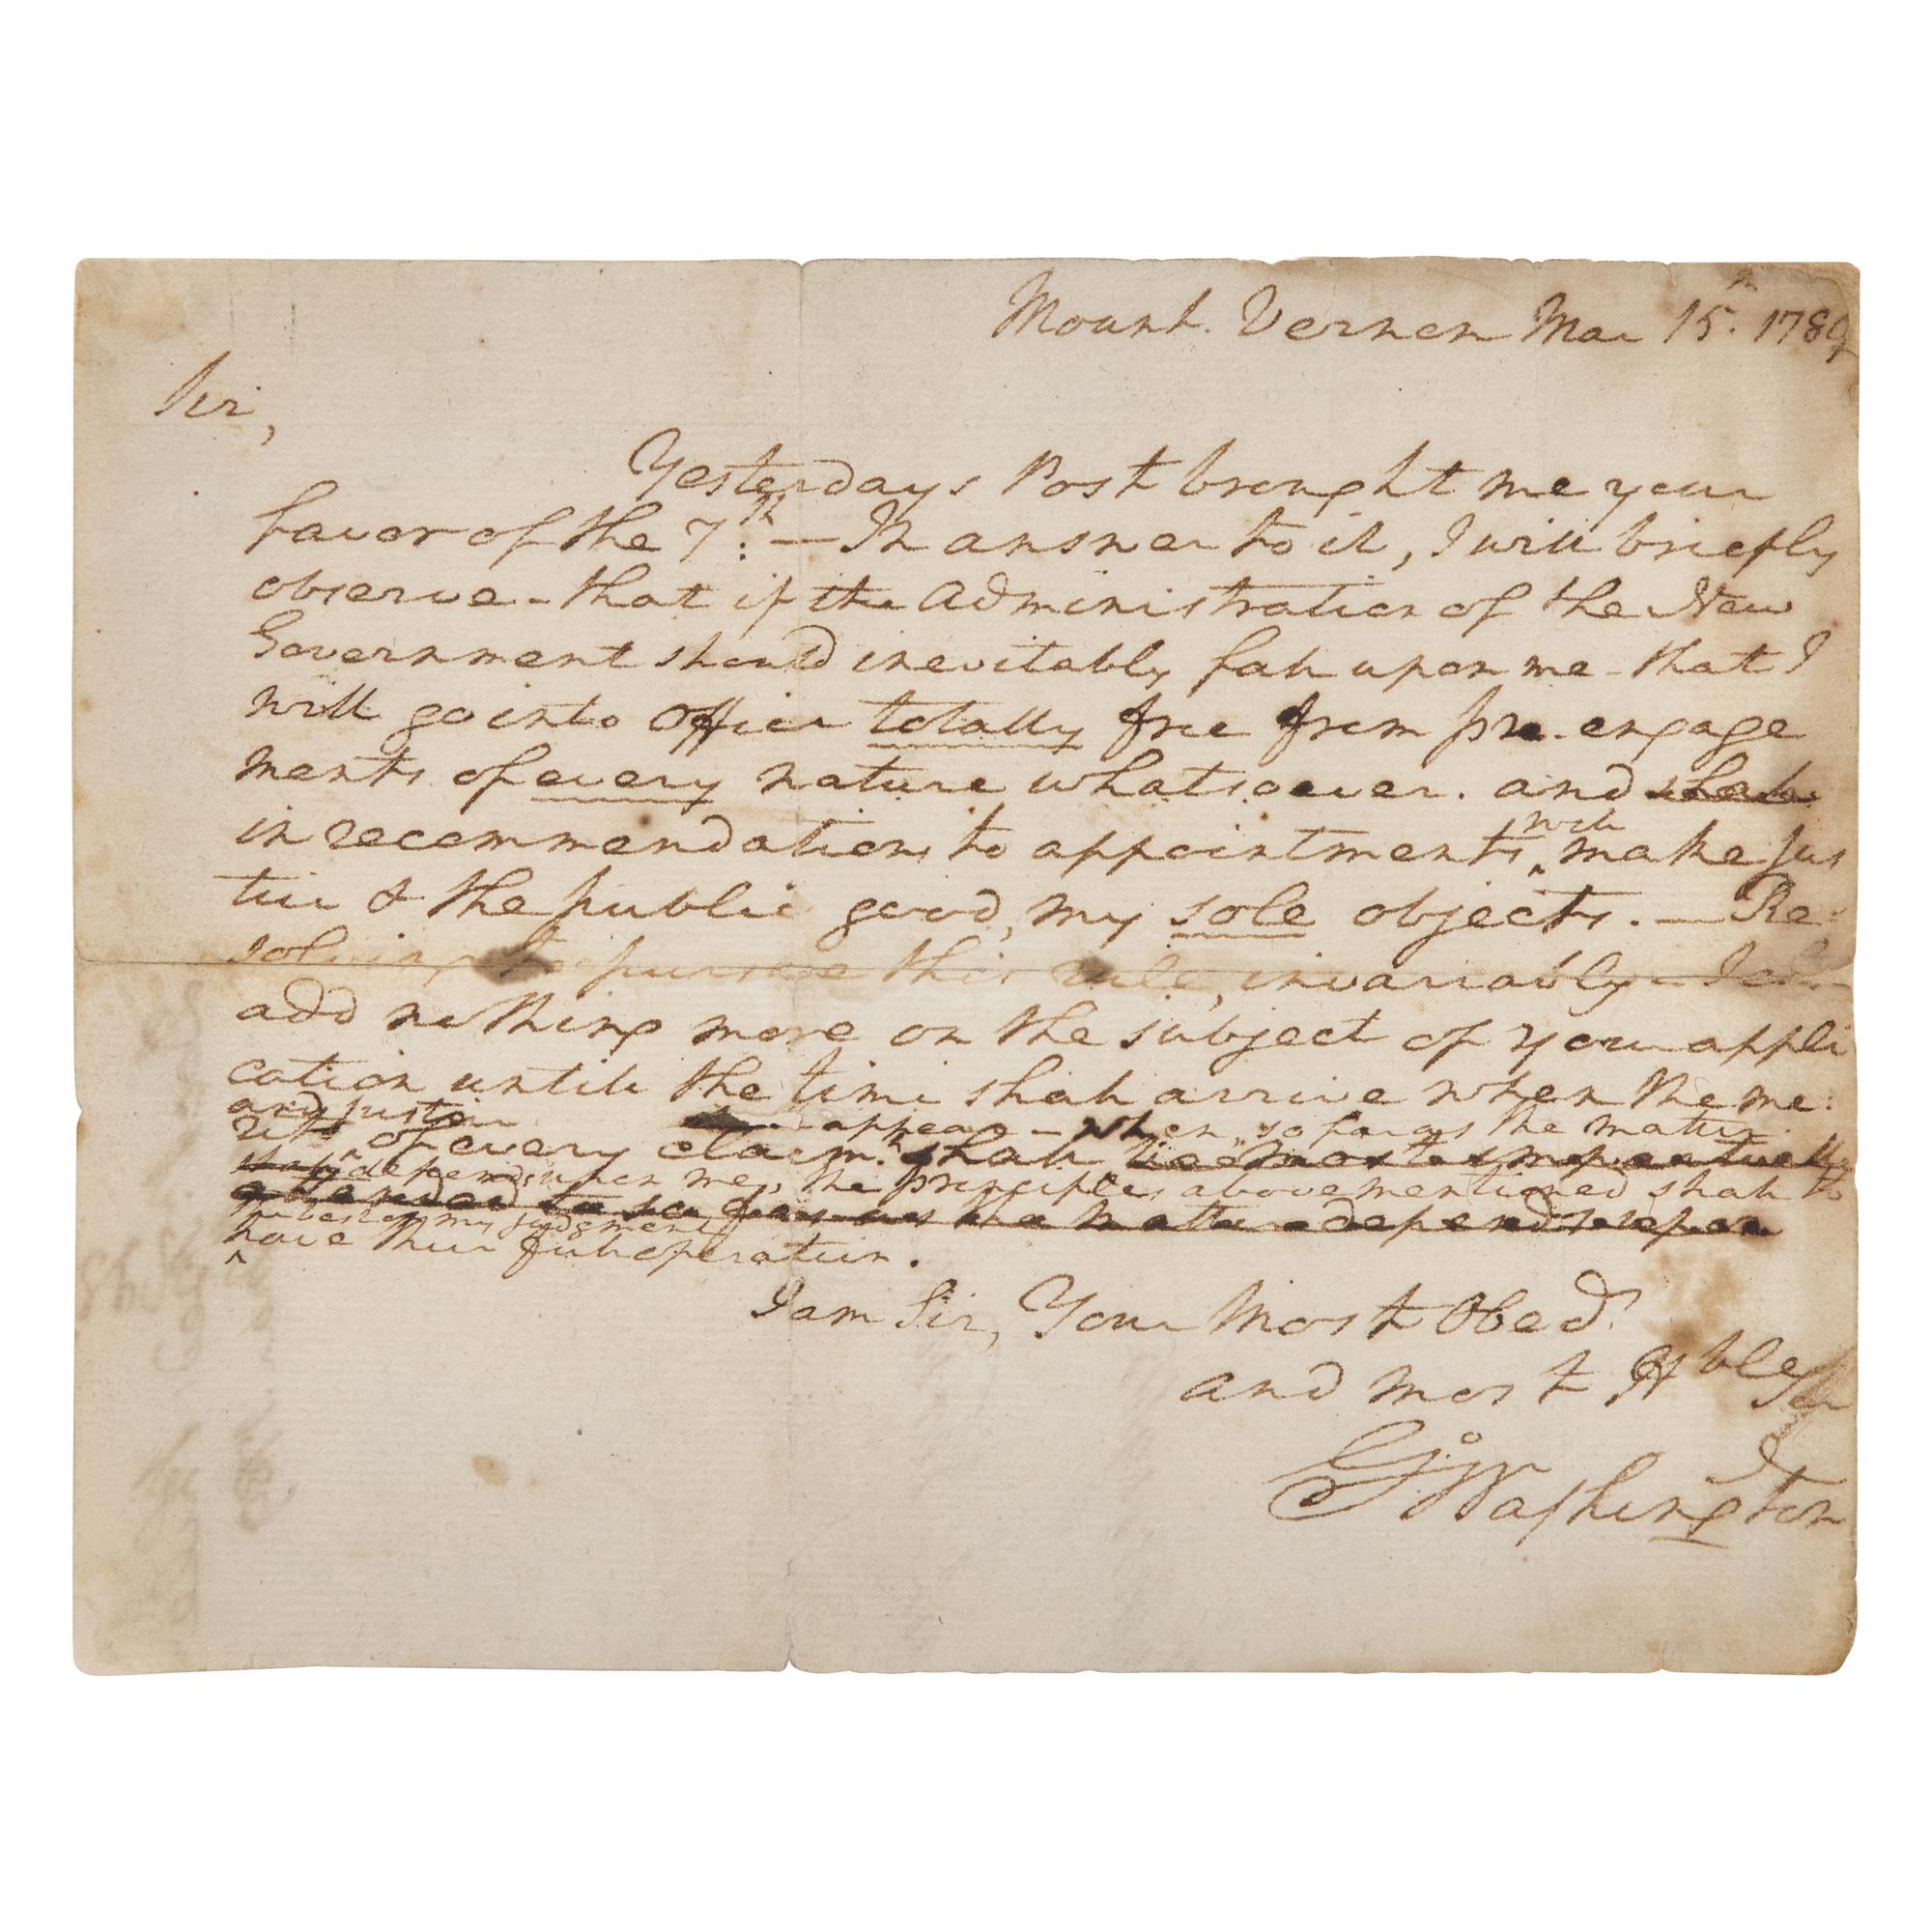 Mount Vernon Mar 15th 1789
Sir,
Yesterdays Post brought me your
favor of the 7th: — In answer to it, I will briefly
observe - that if the Administration of the New
Government should inevitably fall upon me - that I
will go into Office totally free from pre-engage
ments of every nature whatsoever. and shall
in recommendations to appointments will make jus
tice & the public good, my sole objects. — Re=
solving to pursue this rule, invariably - I
add nothing more on the subject of your appli
cation until the time shall arrive when the me:
and justice
appear - when, so far as the matter
rits of every claim shall be most impartially
shall depend upon me, the principles above mentioned shall to
attended to so far as the matter depends upon
the best of my judgment
have their full operation.
I am Sir, Your Most Obed.
and most Hble Ser
Go: Washington